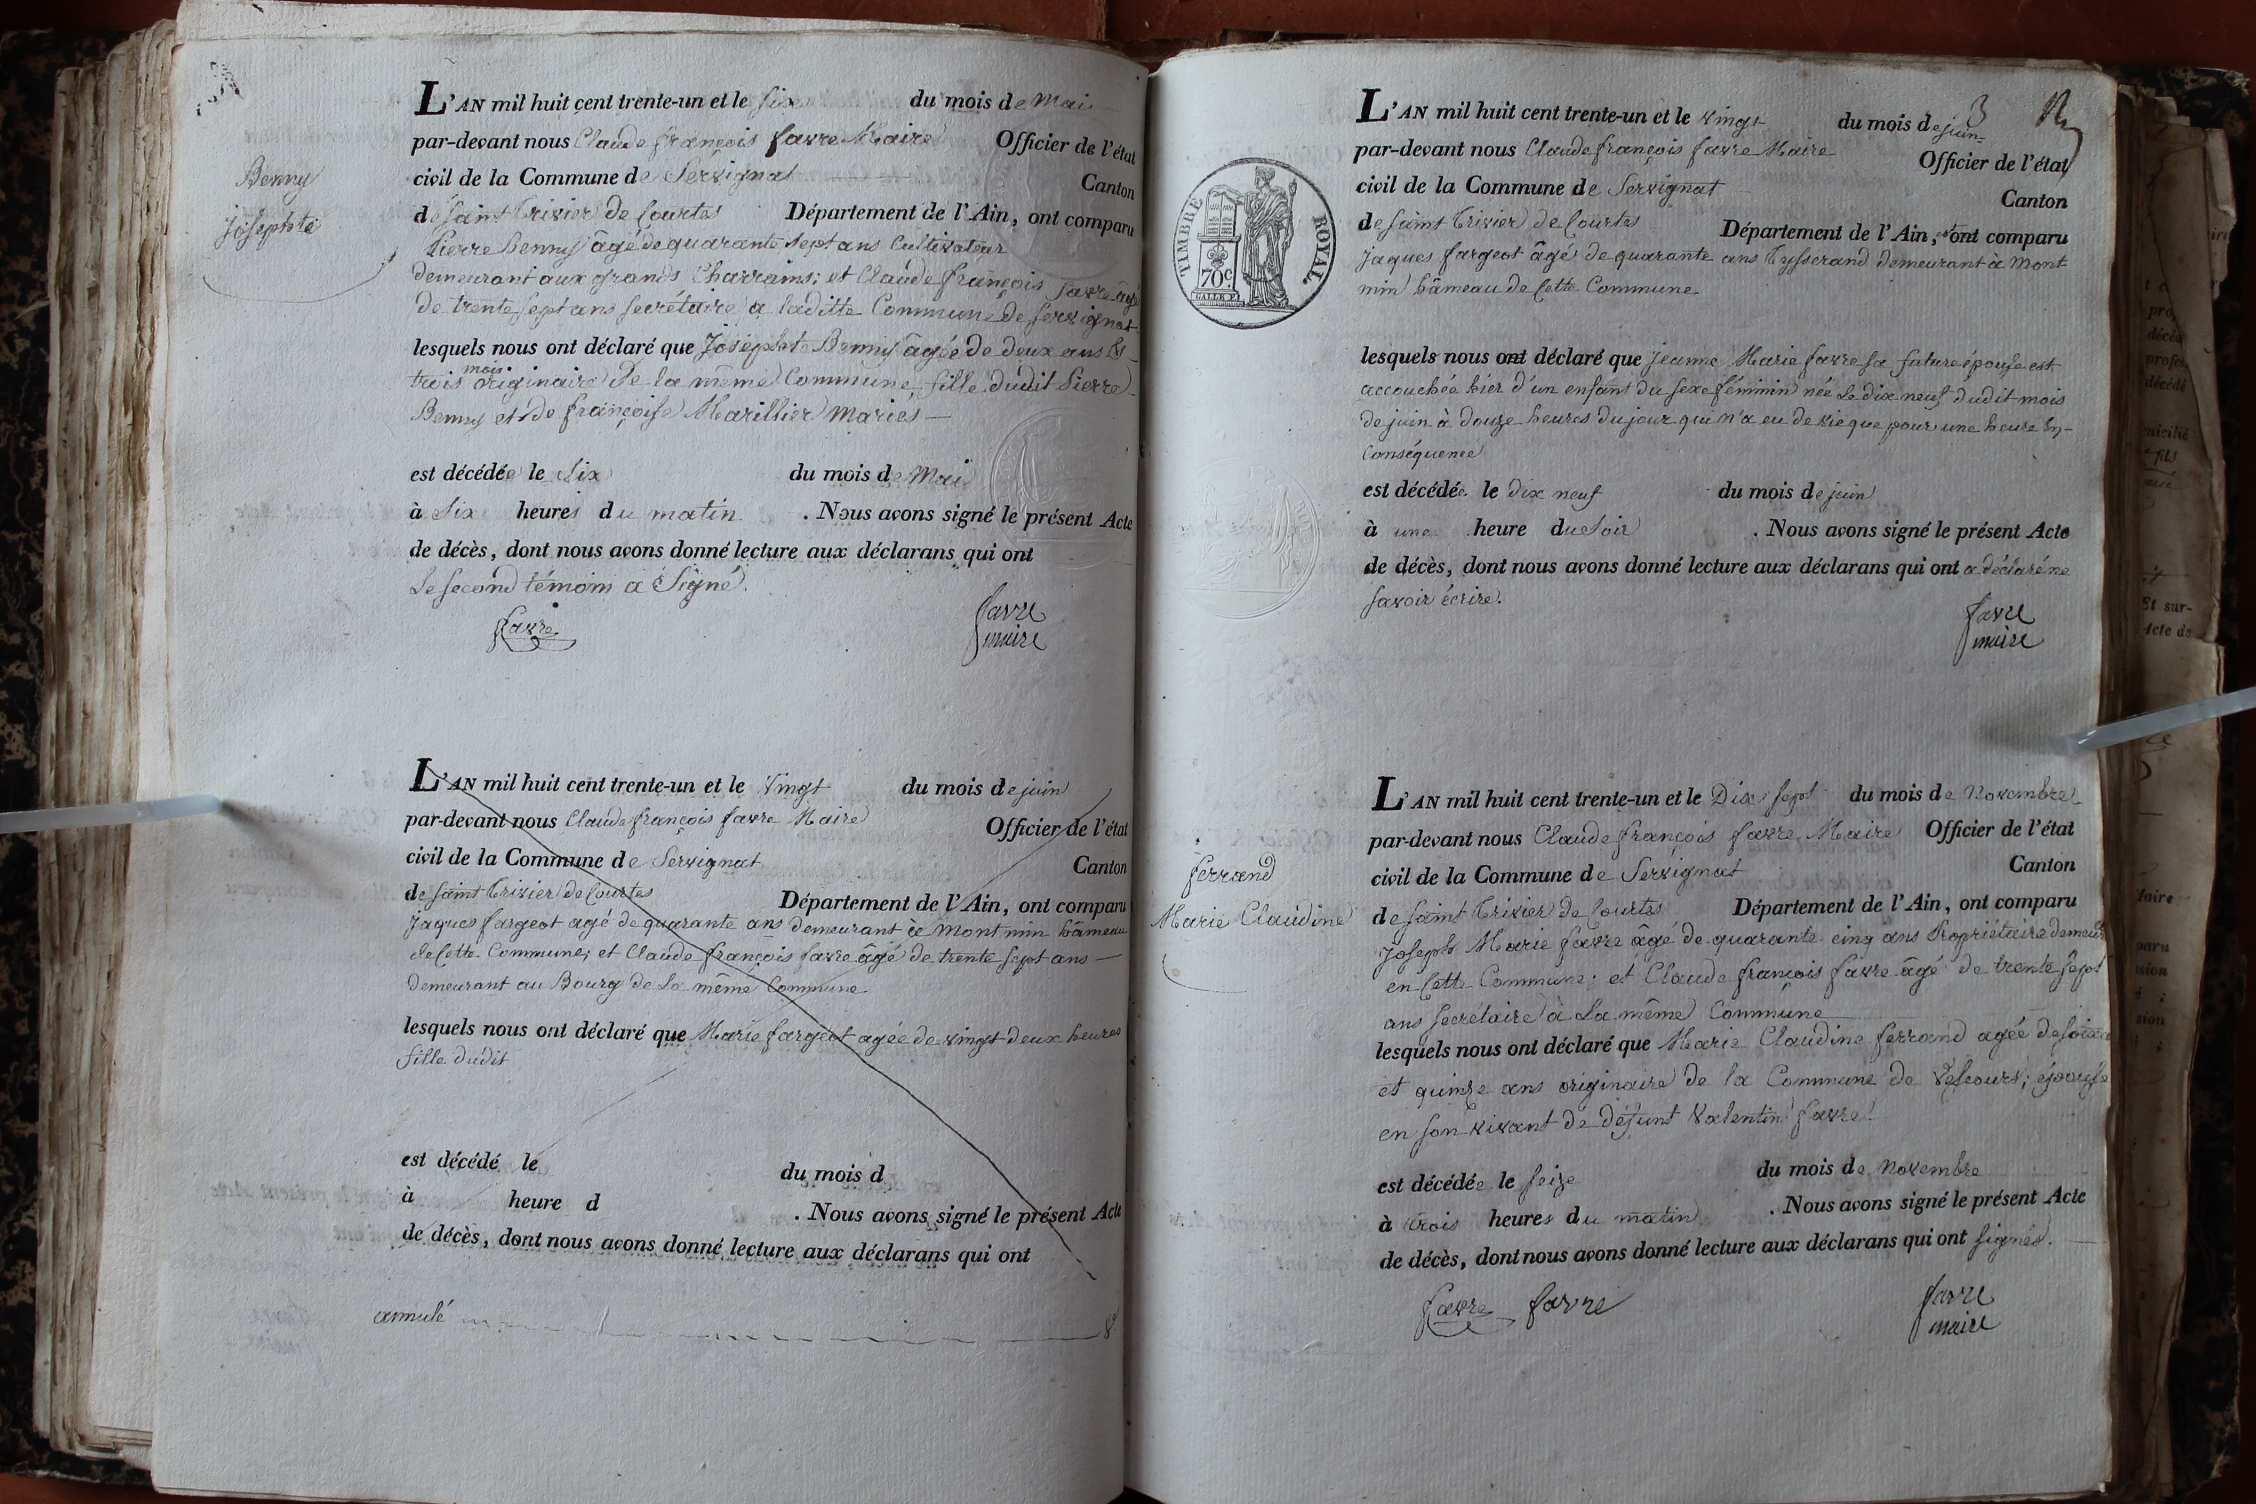 Benny
Josephte
L'AN mil huit cent trente-un et le six du mois de Mai
par-devant nous Claude françois favre Maire Officier de l'état
civil de la Commune de Servignat Canton
de Saint Trivier de Courtes Département de l'Ain, ont comparu
Pierre Benny âgé de quarante sept ans Cultivateur
demeurant aux grands Charrains; et Claude françois favre âgé
de trente sept ans secrétaire a laditte Commune de Servignat
lesquels nous ont déclaré que Josephte Benny âgée de deux ans &
trois mois originaire de la même Commune, fille dudit Pierre
Benny et de françoise Marillier mariés
est décédée le Six du mois de Mai
à Six heures du matin . Nous avons signé le présent Acte
de décès, dont nous avons donné lecture aux déclarans qui ont
Le second témoin a Signé.
favre
favre
maire
L'AN mil huit cent trente-un et le vingt du mois de juin
par-devant nous Claude françois favre Maire Officier de l'état
civil de la Commune de Servignat Canton
de Saint Trivier de Courtes Département de l'Ain, ont comparu
Jaques fargeot agé de quarante ans demeurant à Montmin hâmeau
de Cette Commune; et Claude françois favre âgé de trente sept ans
demeurant au Bourg de la même Commune
lesquels nous ont déclaré que Marie fargeot agée de vingt deux heures
fille dudit
est décédé le du mois d
à heure d . Nous avons signé le présent Acte
de décès, dont nous avons donné lecture aux déclarans qui ont
annulé
3
TIMBRE ROYAL.
70c.
L'AN mil huit cent trente-un et le vingt du mois de juin
par-devant nous Claude françois favre Maire Officier de l'état
civil de la Commune de Servignat Canton
de Saint Trivier de Courtes Département de l'Ain, est ont comparu
Jaques fargeot âgé de quarante ans Tysserand demeurant à Mont
min hâmeau de Cette Commune
lesquels nous ont déclaré que Jeanne Marie favre sa future épouse est
accouchée hier d'un enfant du sexe féminin née Le dix neuf dudit mois
de juin à douze heures du jour qui n'a eu de vie que pour une heure En
Conséquence
est décédée le dix neuf du mois de juin
à une heure du Soir . Nous avons signé le présent Acte
de décès, dont nous avons donné lecture aux déclarans qui ont a déclaré ne
savoir écrire.
favre
maire
ferrand
Marie Claudine
L'AN mil huit cent trente-un et le Dix sept du mois de Novembre
par-devant nous Claude françois favre Maire Officier de l'état
civil de la Commune de Servignat Canton
de Saint Trivier de Courtes Département de l'Ain, ont comparu
Joseph Marie favre âgé de quarante cinq ans Propriétaire demeur
en Cette Commune; et Claude françois favre âgé de trente sept
ans secrétaire à La même Commune
lesquels nous ont déclaré que Marie Claudine ferrand agée de soixa
et quinze ans originaire de la Commune de Vescours; épouse
en son vivant de défunt Valentin favre
est décédée le seize du mois de Novembre
à trois heures du matin . Nous avons signé le présent Acte
de décès, dont nous avons donné lecture aux déclarans qui ont signés.
favre favre
favre
maire